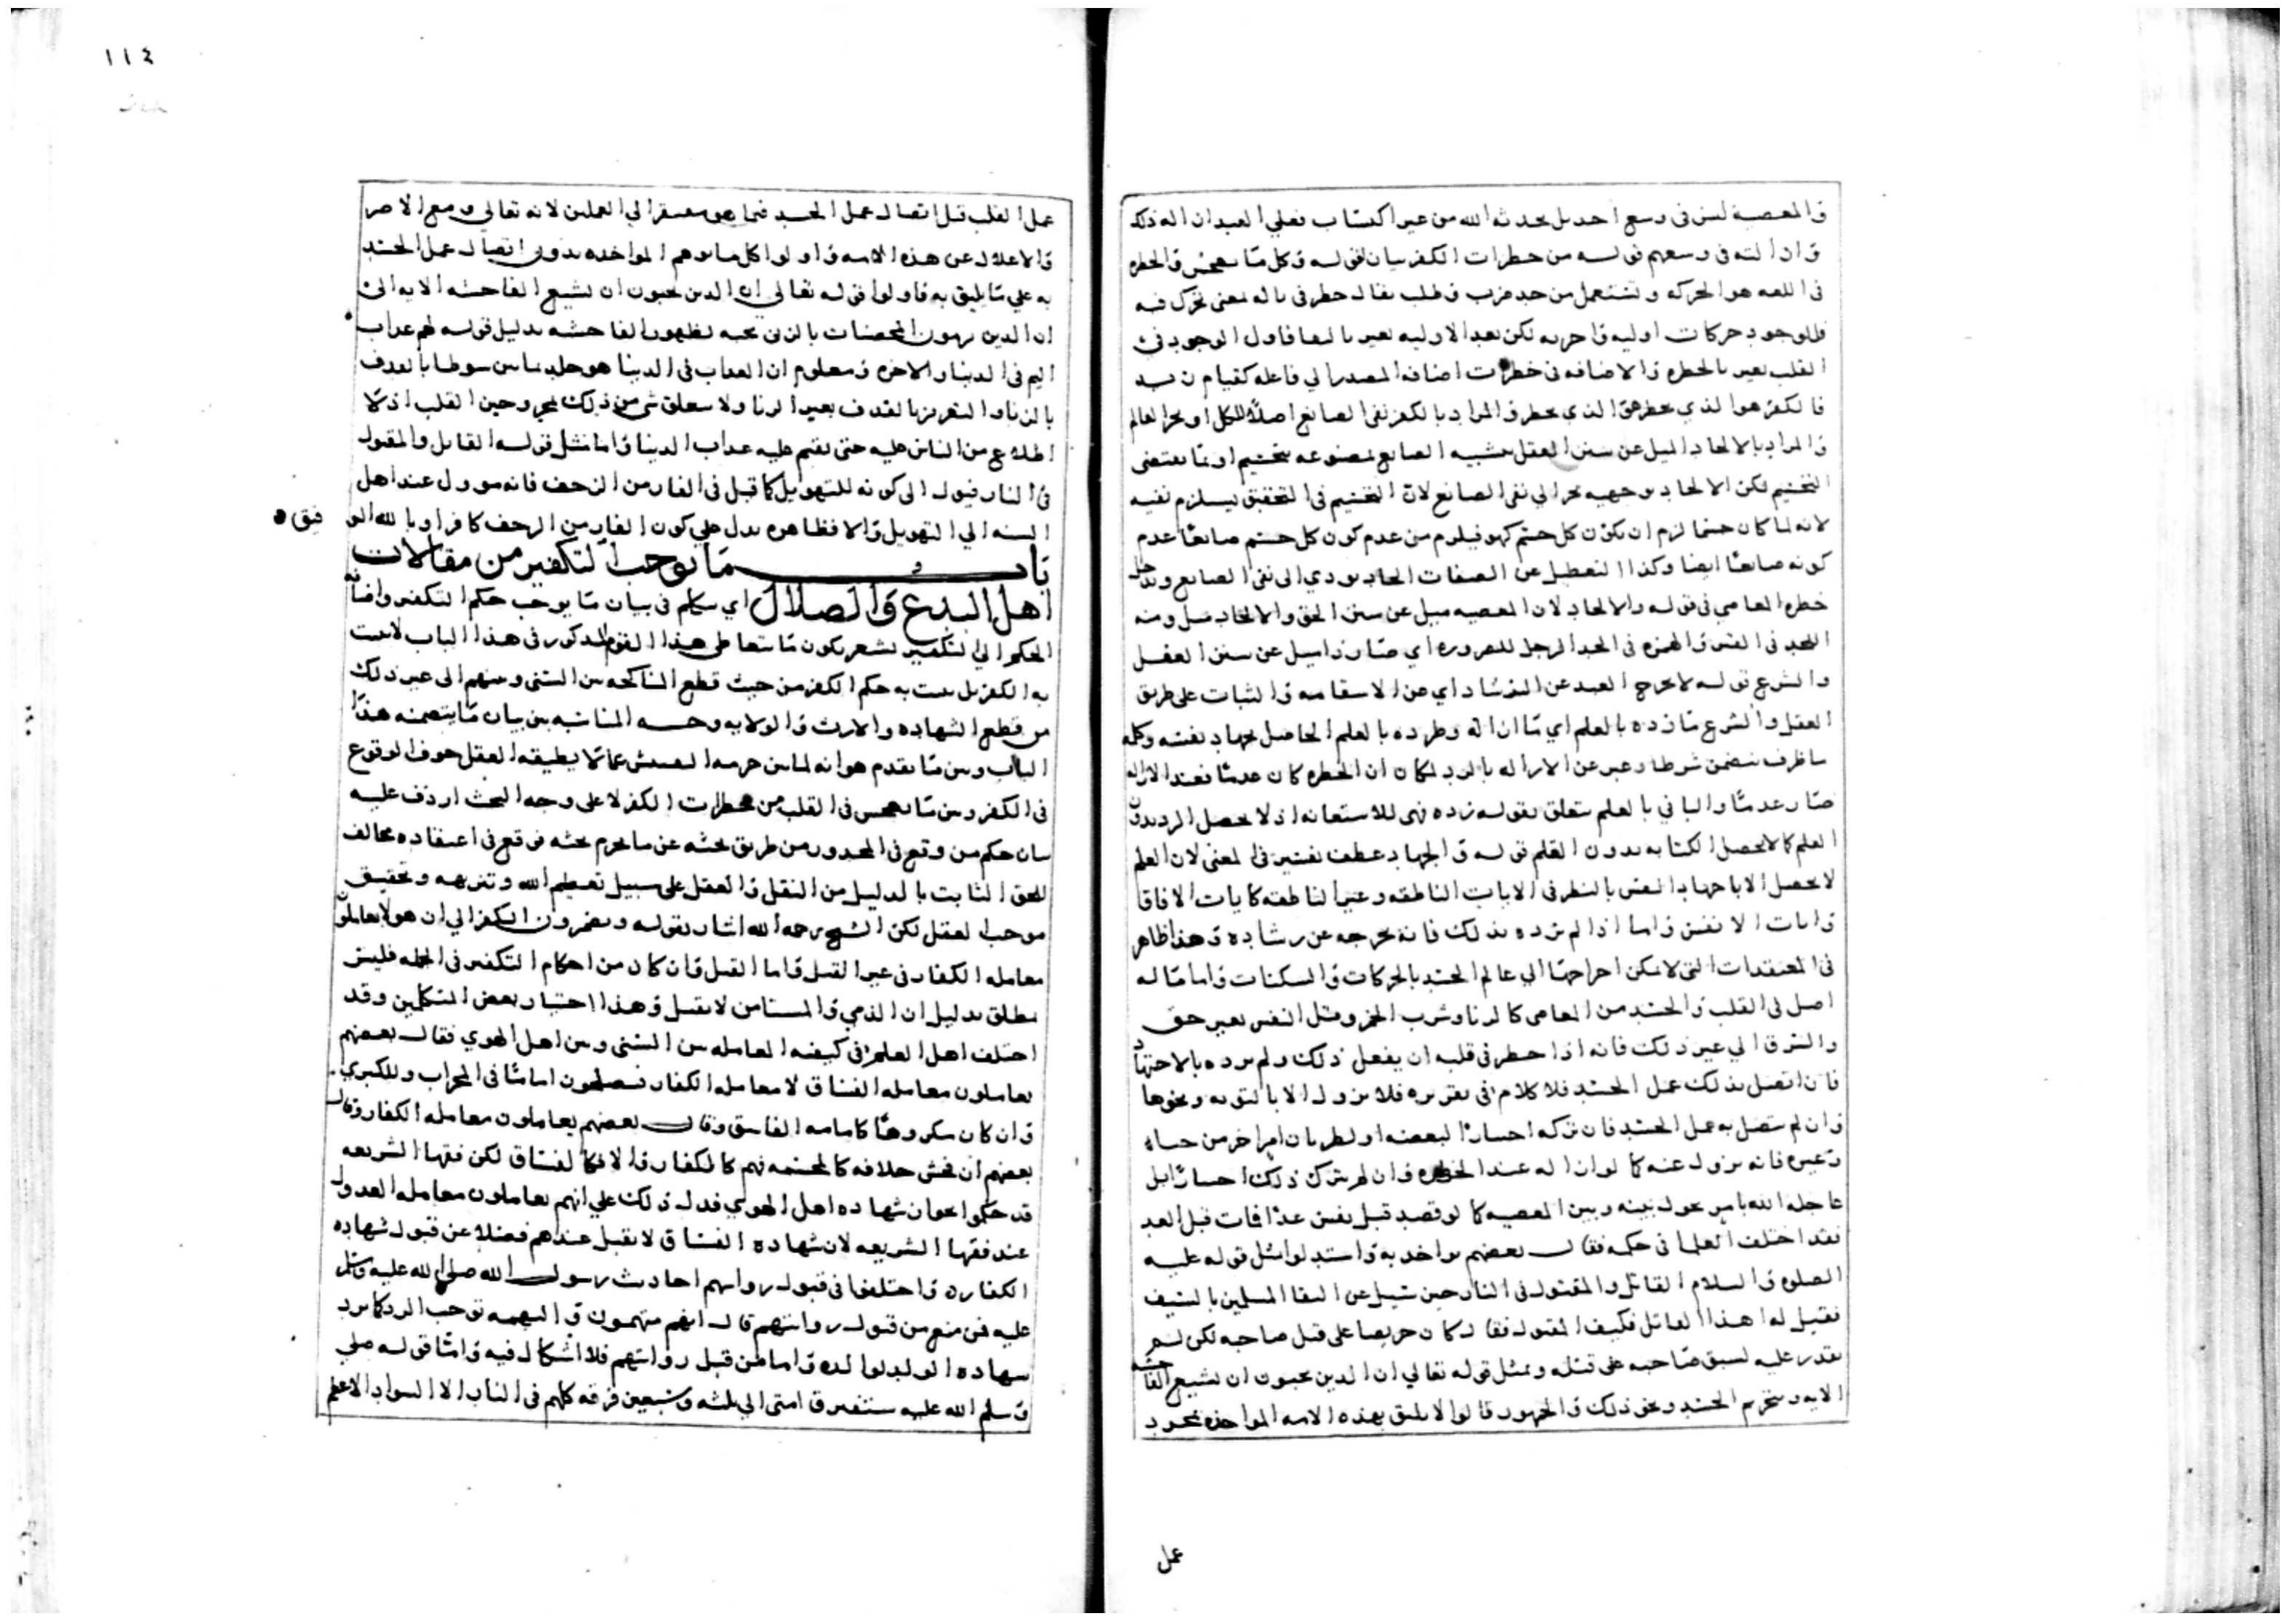 والمعصية ليس في وسع احد بل يحدثه الله من غير اكتساب فعلي العبد ازاله ذلك
وازالته في وسعهم قوله من خطرات الكفر بيان لقوله وكل ما يهجس والخطره
في اللغه هو الحركه وتستعمل من حد ضرب وطلب يقال خطر في باله معنى تحرك فيه
فللوجود حركات اوليه واخريه لكن بعد الاوليه يعبر بالبقا فاول الوجود في
القلب يعبر بالخطره والاضافه في خطرات اضافه المصدر الي فاعله كقيام زيد
فالكفر هو الذي يخطر هو الذي يخطر والمراد بالكفر نفي الصانع اصلا للكل او بحر العالم
والمراد بالالحاد الميل عن سنن العقل بتشبيه الصانع بمصنوعه بتجسيم او بما يقتضى
التجسيم لكن الالحاد بوجهيه يجر الي نفي الصانع لان التجسيم في التحقيق يستلزم نفيه
لانه لما كان جسما لزم ان يكون كل جسم كهو فيلزم من عدم كون كل جسم صانعا عدم
كونه صانعا ايضا وكذا التعطيل عن الصفات الحاد يودي الى نفي الصانع وتدخل
خطره المعاصي في قوله والالحاد لان المعصيه ميل عن سنن الحق والالحاد ميل ومنه
اللحد في القبر والهمزه في الحد الرجل للصروره اي صار ذا ميل عن سنن العقل
والشرع قوله لا يخرج العبد عن الرشاد اي عن الاستقامه والثبات على طريق
العقل والشرع ما رده بالعلم اي ما ازاله وطرده بالعلم الحاصل بجهاد نفسه وكلمه
ما ظرف يتضمن شرطا وعبر عن الازاله بالرد لمكان ان الخطره كان عدما فعند الازاله
صار عدما والبا في بالعلم يتعلق بقوله رده فهى للاستعانه اذ لا يحصل الرد بدون
العلم كما لا يحصل الكتابه بدون القلم قوله والجهاد عطف تفسير في المعنى لان العلم
لا يحصل الا باجهاد النفس بالنظر في الايات الناطقه وغير الناطقه كايات الافاق
وايات الانفس واما اذا لم يرده بذلك فانه يخرجه عن رشاده وهذا ظاهر
في المعتقدات التي لا يمكن اخراجها الي عالم الجسد بالحركات والسكنات واما ما له
اصل في القلب والجسد من المعاصى كالزنا وشرب الخمر وقتل النفس بغير حق
والسرق الي غير ذلك فانه اذا خطر في قلبه ان يفعل ذلك ولم يرده بالاجتهاد
فان اتصل بذلك عمل الجسد فلا كلام في تقريره فلا يزول الا بالتوبه ونحوها
وان لم يتصل به عمل الجسد فان تركه احسارا لبعضه او لطريان امر اخر من حياء
وغيره فانه يزول عنه كما لو ازاله عند الخطره وان لم يترك ذلك احسارا بل
عاجله الله بامر يحول بينه وبين المعصيه كما لو قصد قتل نفس عدا فمات قبل الغد
فقد اختلف العلما في حكمه فقال بعضهم يواخذ به واستدلوا بمثل قوله عليه
الصلوه والسلام القاتل والمقتول في النار حين سيل عن التقا المسلمين بالسيف
فقيل له هذا القاتل فكيف المقتول فقال كان حريصا على قتل صاحبه لكن لم
يقدر عليه لسبق صاحبه على قتله وبمثل قوله تعالي ان الذين يحبون ان تشيع الفاحشه
الايه وبتحريم الحسد ونحو ذلك والجمهور قالوا لا يليق بهذه الامه المواخذه بمجرد
عمل
١١٤
عمل القلب قبل اتصال عمل الجسد فيما هو مفتقر الي العملين لانه تعالي وضع الاصر
والاغلال عن هذه الامه واولوا كل ما يوهم المواخذه بدون اتصال عمل الجسد
به علي ما يليق به فاولوا قوله تعالي ان الذين يحبون ان تشيع الفاحشه الايه الى
ان الذين يرمون المحصنات بالزنى محبه لظهور الفاحشه بدليل قوله لهم عذاب
اليم في الدنيا والاخره ومعلوم ان العذاب في الدنيا هو جلد ثمانين سوطا بالقذف
بالزنا والتعزير بالقذف بغير الزنا ولا يتعلق شي من ذلك بمجرد حين القلب اذ لا
اطلاع من الناس عليه حتى يقيم عليه عذاب الدنيا واما مثل قوله القاتل والمقتول
في النار فيول الى كونه للتهويل كما قيل في الفار من الزحف فانه موول عند اهل
السنه الي التهويل والا فظاهره يدل على كون الفار من الزحف كافرا وبالله التو
فيق
باب ما يوجب التكفير من مقالات
اهل البدع والضلال اي سكلم في بيان ما يوجب حكم التكفير واضافه
الحكم الي التكفير لشعر بكون ما يتعاطى هذا القوم المذكور في هذا الباب لا يثبت
به الكفر بل يثبت به حكم الكفر من حيث قطع المناكحه بين السني وبينهم الى غير ذلك
من قطع الشهاده والارث والولايه ووجه المناسبه بين بيان ما يتضمنه هذا
الباب وبين ما تقدم هو انه لما بين حرمه التفتيش عما لا يطيقه العقل خوف الوقوع
في الكفر وبين ما يهجس في القلب من خطرات الكفر لا على وجه البحث اردف عليه
بيان حكم من وقع في المحذور من طريق بحثه عن ما يحرم بحثه فوقع في اعتقاده مخالف
للحق الثابت بالدليل من النقل والعقل على سبيل تعظيم الله وتنزيهه وتحقيق
موجب العقل لكن الشيخ رحمه الله اشار بقوله ويضمرون الكفر الي ان هولا يعاملون
معامله الكفار في غير القتل واما القتل وان كان من احكام التكفير في الجمله فليس
بمطلق بدليل ان الذمي والمستامن لا يقتل وهذا اختيار بعض المتكلمين وقد
اختلف اهل العلم في كيفيه المعامله بين السني وبين اهل الهوي فقال بعضهم
يعاملون معامله الفساق لا معامله الكفار فيصلحون اماما في المحراب وللكبري
وان كان مكروها كامامه الفاسق وقال بعضهم يعاملون معامله الكفار وقال
بعضهم ان فحش خلافه كالمجسمه فهم كالكفار والا فكالفساق لكن فقها الشريعه
قد حكموا بجواز شهاده اهل الهوي فدل ذلك علي انهم يعاملون معامله العدول
عند فقها الشريعه لان شهاده الفساق لا تقبل عندهم فضلا عن قبول شهاده
الكفاره واختلفوا في قبول روايتهم احاديث رسول الله صلي الله عليه وسلم
عليه فمن منع من قبول روايتهم قال انهم متهمون والتهمه توجب الرد كما يرد
شهاده الولد لوالده واما من قبل روايتهم فلا اشكال فيه واما قوله صلي
وسلم الله عليه ستفترق امتى الي ثلثه وسبعين فرقه كلهم في النار الا السواد الاعظم